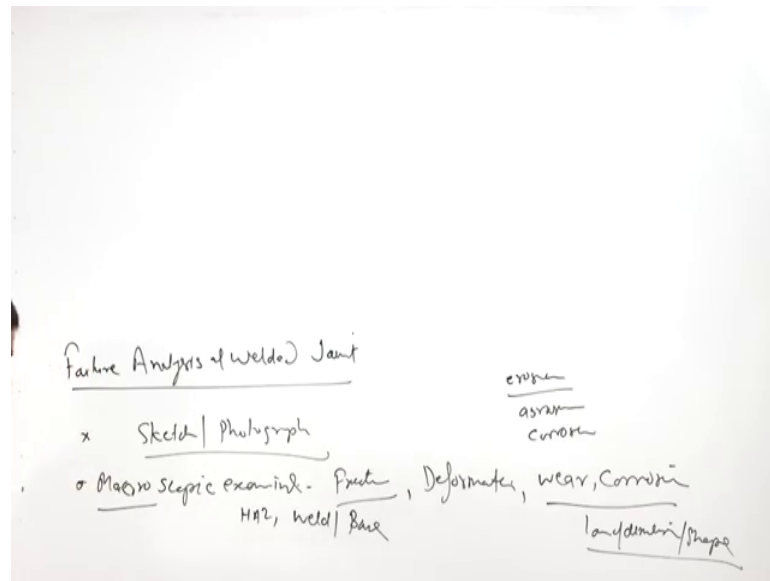 Failure Analysis of Welded Joint
erosion
abrasion
corrosion
x Sketch / Photograph
Macroscopic examin - Fracture, Deformation, wear, Corrosion
HAZ, Weld / Base
/ Shape